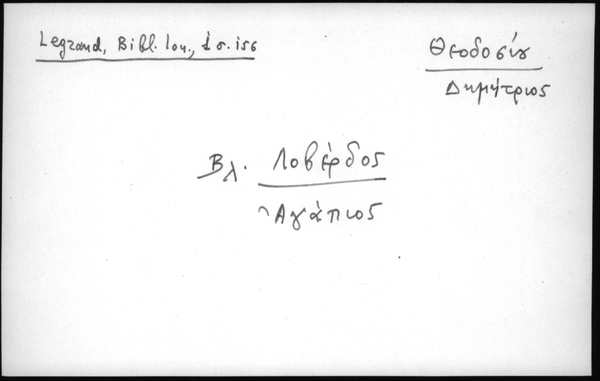 Legrand, Bibl. Ion., 1 σ. 156
Θεοδοσίου
Δημήτριος
Βλ. Λοβέρδος
Ἀγάπιος